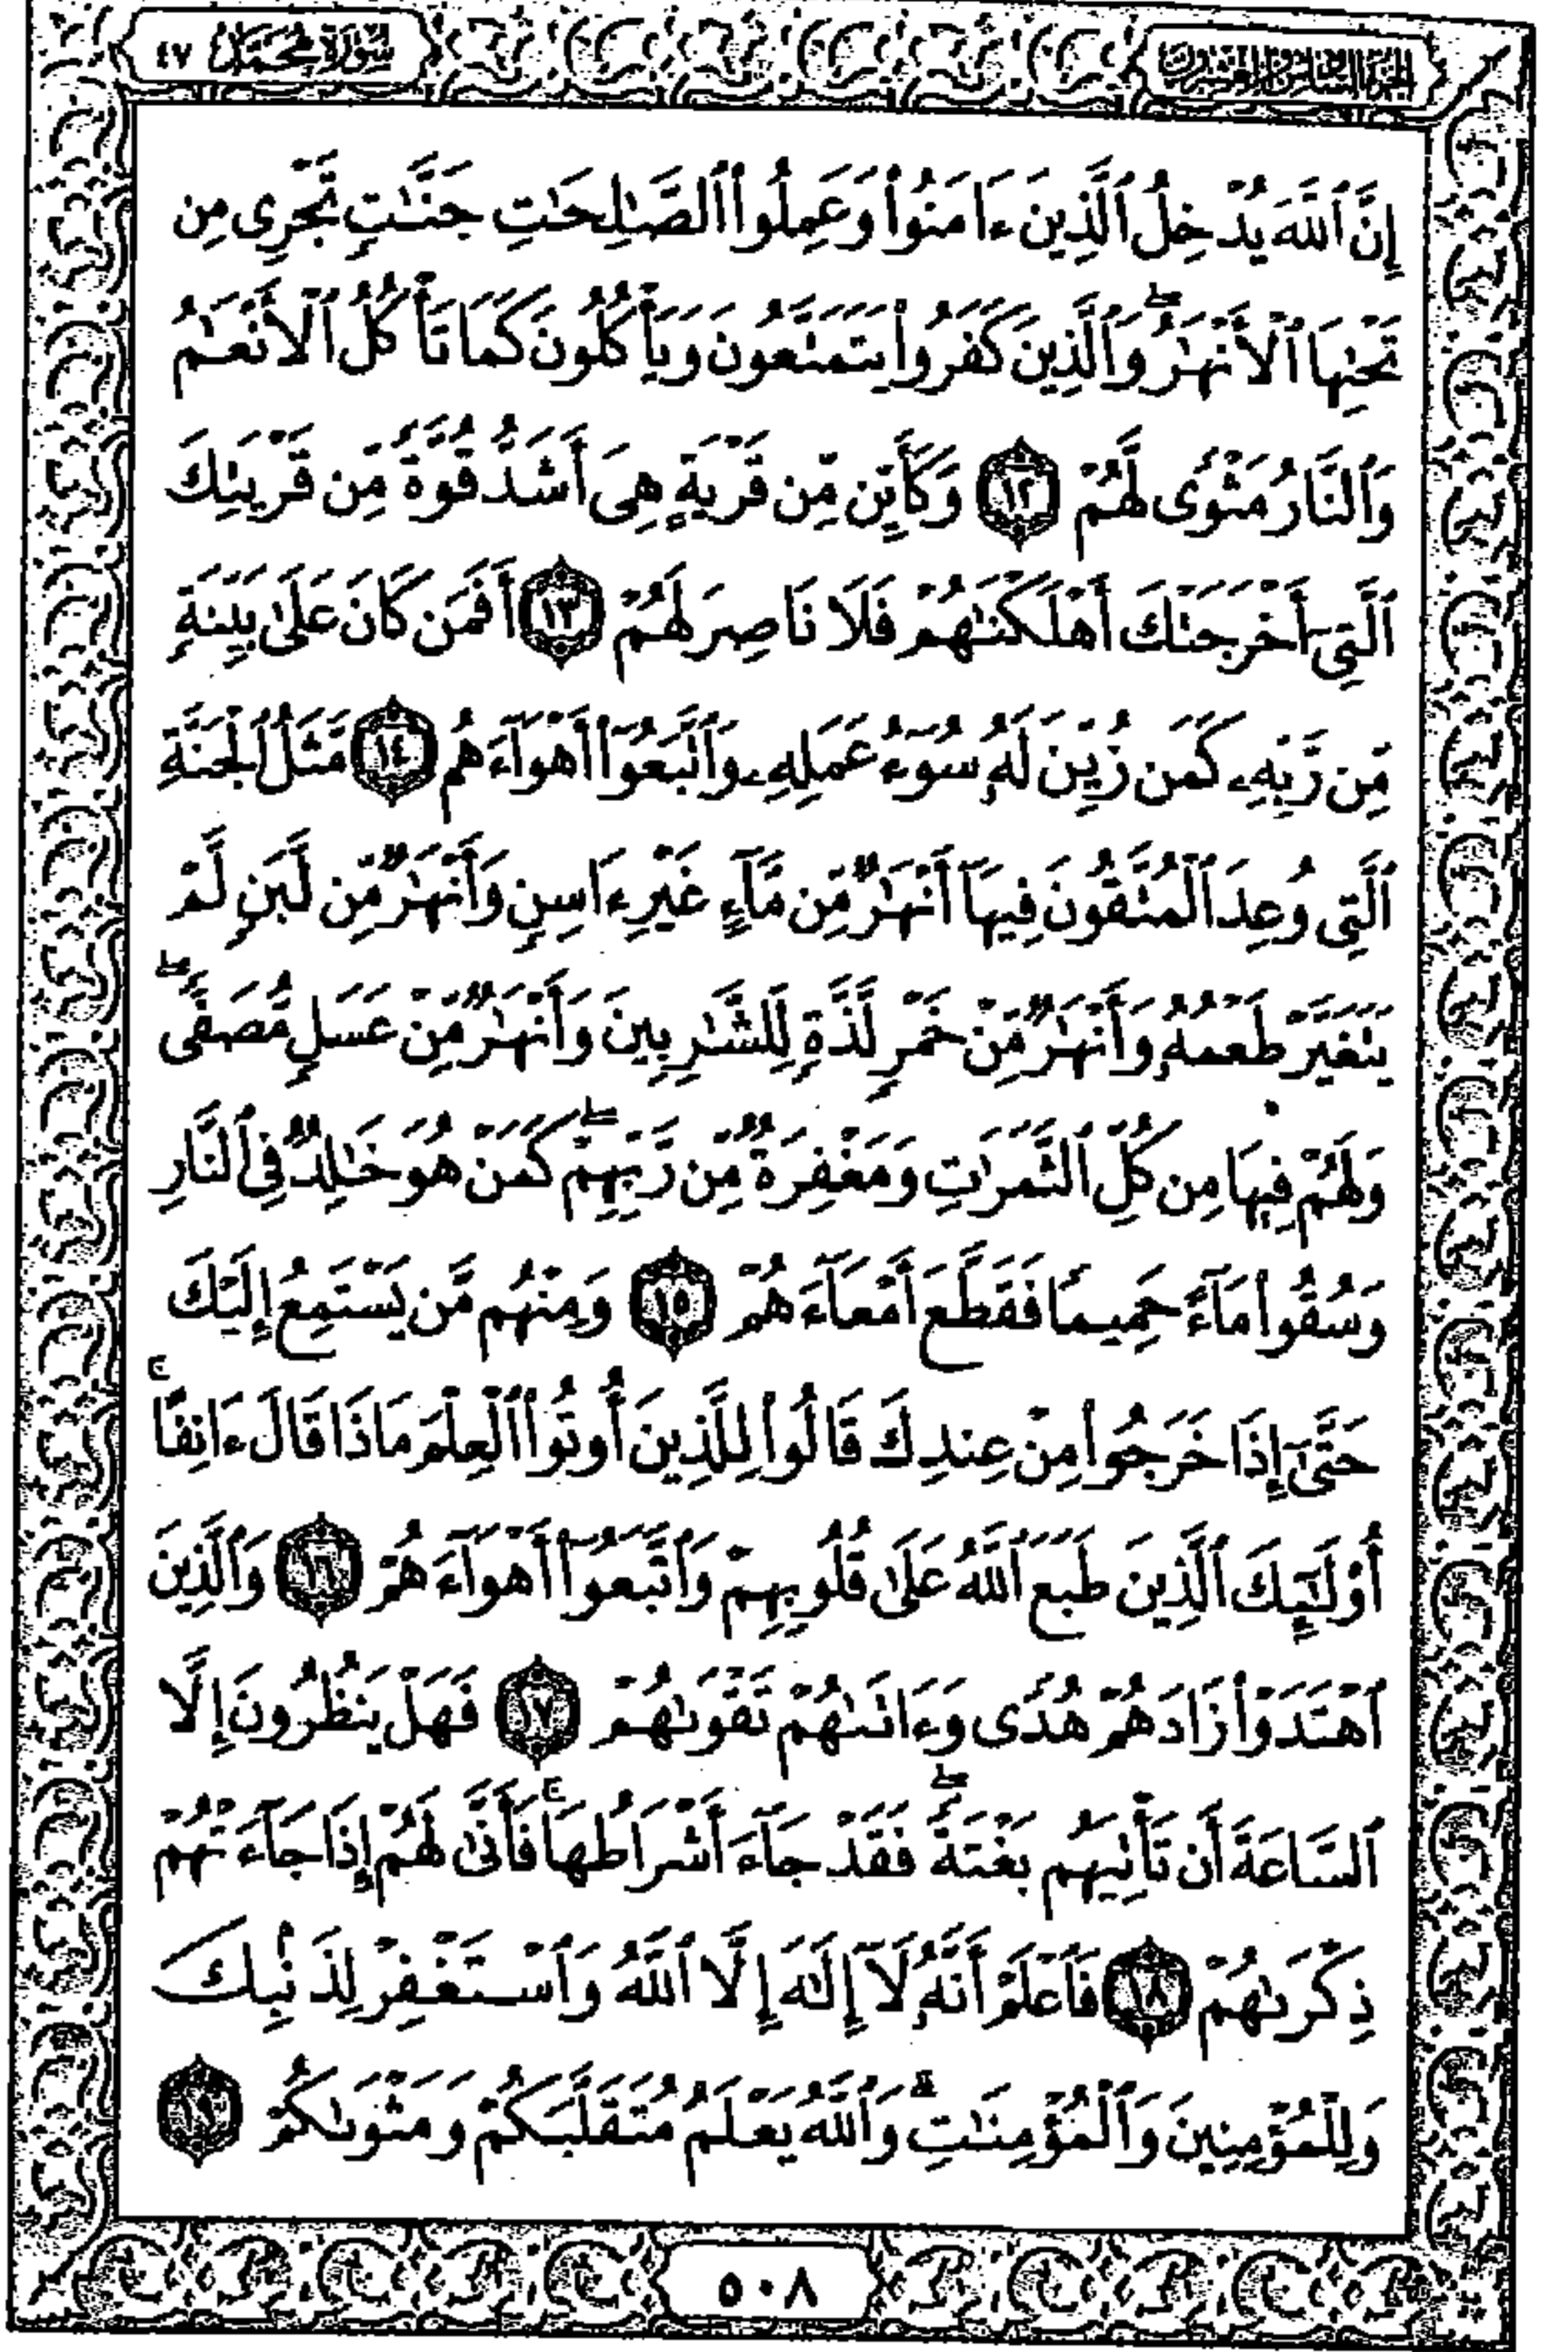 الجزء السادس والعشرون
سورة محمد ٤٧
إِنَّ ٱللَّهَ يُدْخِلُ ٱلَّذِينَ ءَامَنُوا۟ وَعَمِلُوا۟ ٱلصَّٰلِحَٰتِ جَنَّٰتٍ تَجْرِى مِن
تَحْتِهَا ٱلْأَنْهَٰرُ ۖ وَٱلَّذِينَ كَفَرُوا۟ يَتَمَتَّعُونَ وَيَأْكُلُونَ كَمَا تَأْكُلُ ٱلْأَنْعَٰمُ
وَٱلنَّارُ مَثْوًى لَّهُمْ ١٢ وَكَأَيِّن مِّن قَرْيَةٍ هِىَ أَشَدُّ قُوَّةً مِّن قَرْيَتِكَ
ٱلَّتِىٓ أَخْرَجَتْكَ أَهْلَكْنَٰهُمْ فَلَا نَاصِرَ لَهُمْ ١٣ أَفَمَن كَانَ عَلَىٰ بَيِّنَةٍ
مِّن رَّبِّهِۦ كَمَن زُيِّنَ لَهُۥ سُوٓءُ عَمَلِهِۦ وَٱتَّبَعُوٓا۟ أَهْوَآءَهُم ١٤ مَّثَلُ ٱلْجَنَّةِ
ٱلَّتِى وُعِدَ ٱلْمُتَّقُونَ فِيهَآ أَنْهَٰرٌ مِّن مَّآءٍ غَيْرِ ءَاسِنٍ وَأَنْهَٰرٌ مِّن لَّبَنٍ لَّمْ
يَتَغَيَّرْ طَعْمُهُۥ وَأَنْهَٰرٌ مِّنْ خَمْرٍ لَّذَّةٍ لِّلشَّٰرِبِينَ وَأَنْهَٰرٌ مِّنْ عَسَلٍ مُّصَفًّى ۖ
وَلَهُمْ فِيهَا مِن كُلِّ ٱلثَّمَرَٰتِ وَمَغْفِرَةٌ مِّن رَّبِّهِمْ ۖ كَمَنْ هُوَ خَٰلِدٌ فِى ٱلنَّارِ
وَسُقُوا۟ مَآءً حَمِيمًا فَقَطَّعَ أَمْعَآءَهُمْ ١٥ وَمِنْهُم مَّن يَسْتَمِعُ إِلَيْكَ
حَتَّىٰٓ إِذَا خَرَجُوا۟ مِنْ عِندِكَ قَالُوا۟ لِلَّذِينَ أُوتُوا۟ ٱلْعِلْمَ مَاذَا قَالَ ءَانِفًا ۚ
أُو۟لَٰٓئِكَ ٱلَّذِينَ طَبَعَ ٱللَّهُ عَلَىٰ قُلُوبِهِمْ وَٱتَّبَعُوٓا۟ أَهْوَآءَهُمْ ١٦ وَٱلَّذِينَ
ٱهْتَدَوْا۟ زَادَهُمْ هُدًى وَءَاتَىٰهُمْ تَقْوَىٰهُمْ ١٧ فَهَلْ يَنظُرُونَ إِلَّا
ٱلسَّاعَةَ أَن تَأْتِيَهُم بَغْتَةً ۖ فَقَدْ جَآءَ أَشْرَاطُهَا ۚ فَأَنَّىٰ لَهُمْ إِذَا جَآءَتْهُمْ
ذِكْرَىٰهُمْ ١٨ فَٱعْلَمْ أَنَّهُۥ لَآ إِلَٰهَ إِلَّا ٱللَّهُ وَٱسْتَغْفِرْ لِذَنۢبِكَ
وَلِلْمُؤْمِنِينَ وَٱلْمُؤْمِنَٰتِ ۗ وَٱللَّهُ يَعْلَمُ مُتَقَلَّبَكُمْ وَمَثْوَىٰكُمْ ١٩
٥٠٨